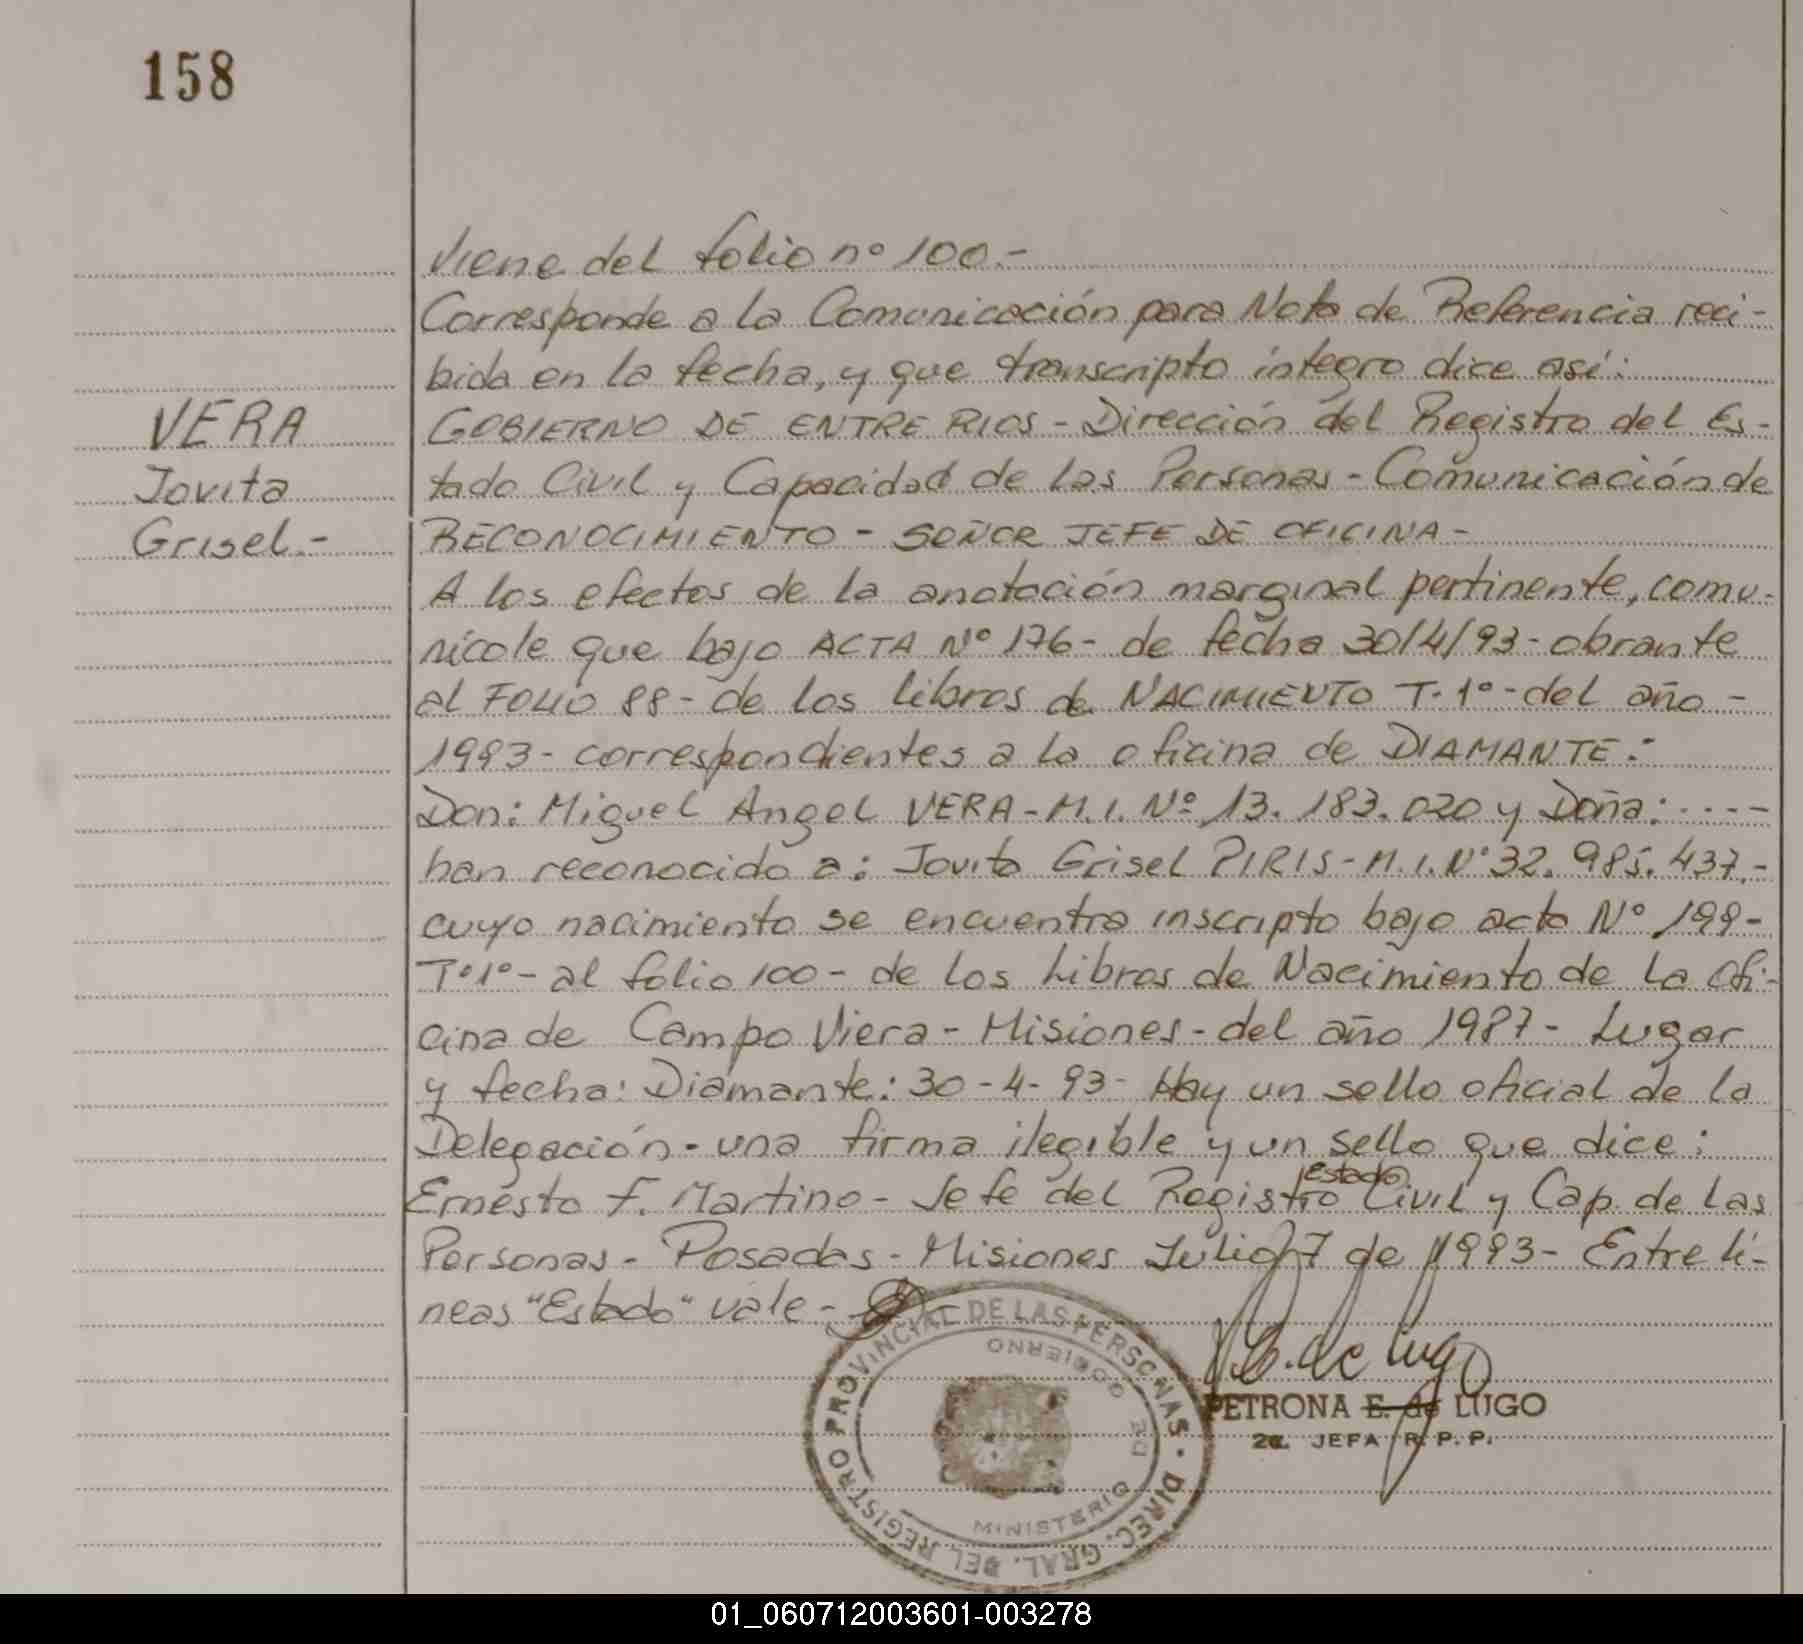 158
Viene del folio nº 100.-
Corresponde a la Comunicación para Nota de Referencia reci-
bida en la fecha, y que transcripto íntegro dice así:
VERA
GOBIERNO DE ENTRE RIOS - Dirección del Registro del Es-
Jovita
tado Civil y Capacidad de las Personas - Comunicación de
Grisel.-
RECONOCIMIENTO - SEÑOR JEFE DE OFICINA -
A los efectos de la anotación marginal pertinente, comu-
nícole que bajo ACTA Nº 176- de fecha 30/4/93- obrante
al FOLIO 88- de los libros de NACIMIENTO T. 1º- del año -
1993- correspondientes a la oficina de DIAMANTE:
Don: Miguel Angel VERA - M.I. Nº 13. 183. 020 y Doña: ----
han reconocido a: Jovita Grisel PIRIS - M.I. Nº 32. 985. 437.-
cuyo nacimiento se encuentra inscripto bajo acta Nº 199-
Tº1º- al folio 100- de los Libros de Nacimiento de la Ofi-
cina de Campo Viera - Misiones - del año 1987 - Lugar
y fecha: Diamante: 30-4-93- Hay un sello oficial de la
Delegación - una firma ilegible y un sello que dice:
Estado
Ernesto F. Martino - Jefe del Registro Civil y Cap. de las
Personas - Posadas - Misiones Julio 7 de 1993 - Entre lí-
neas "Estado" vale -
DIREC. GRAL. DEL REGISTRO PROVINCIAL DE LAS PERSONAS
MINISTERIO DE GOBIERNO
P. E. de Lugo
PETRONA E. de LUGO
2a. JEFA R. P. P.
01_060712003601-003278